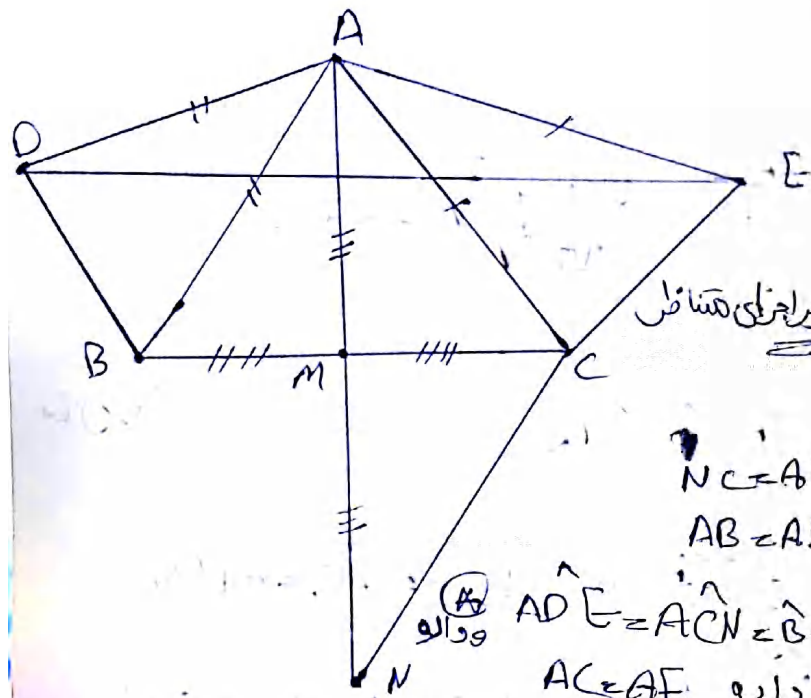 A
D
E
B
M
C
اجزای متناظر
NC=A
AB=A
N
ADÊ=AĈN=B̂
AC=AE